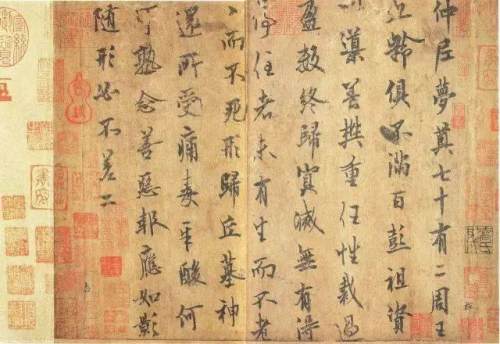 仲尼夢奠七十有二周王
九齡俱不滿百彭祖資
以導養樊重任性裁過
盈數終歸冥滅無有得
停住者未有生而不老
而不死形歸丘墓神
還所受痛毒辛酸何
可熟念善惡報應如影
隨形必不差二